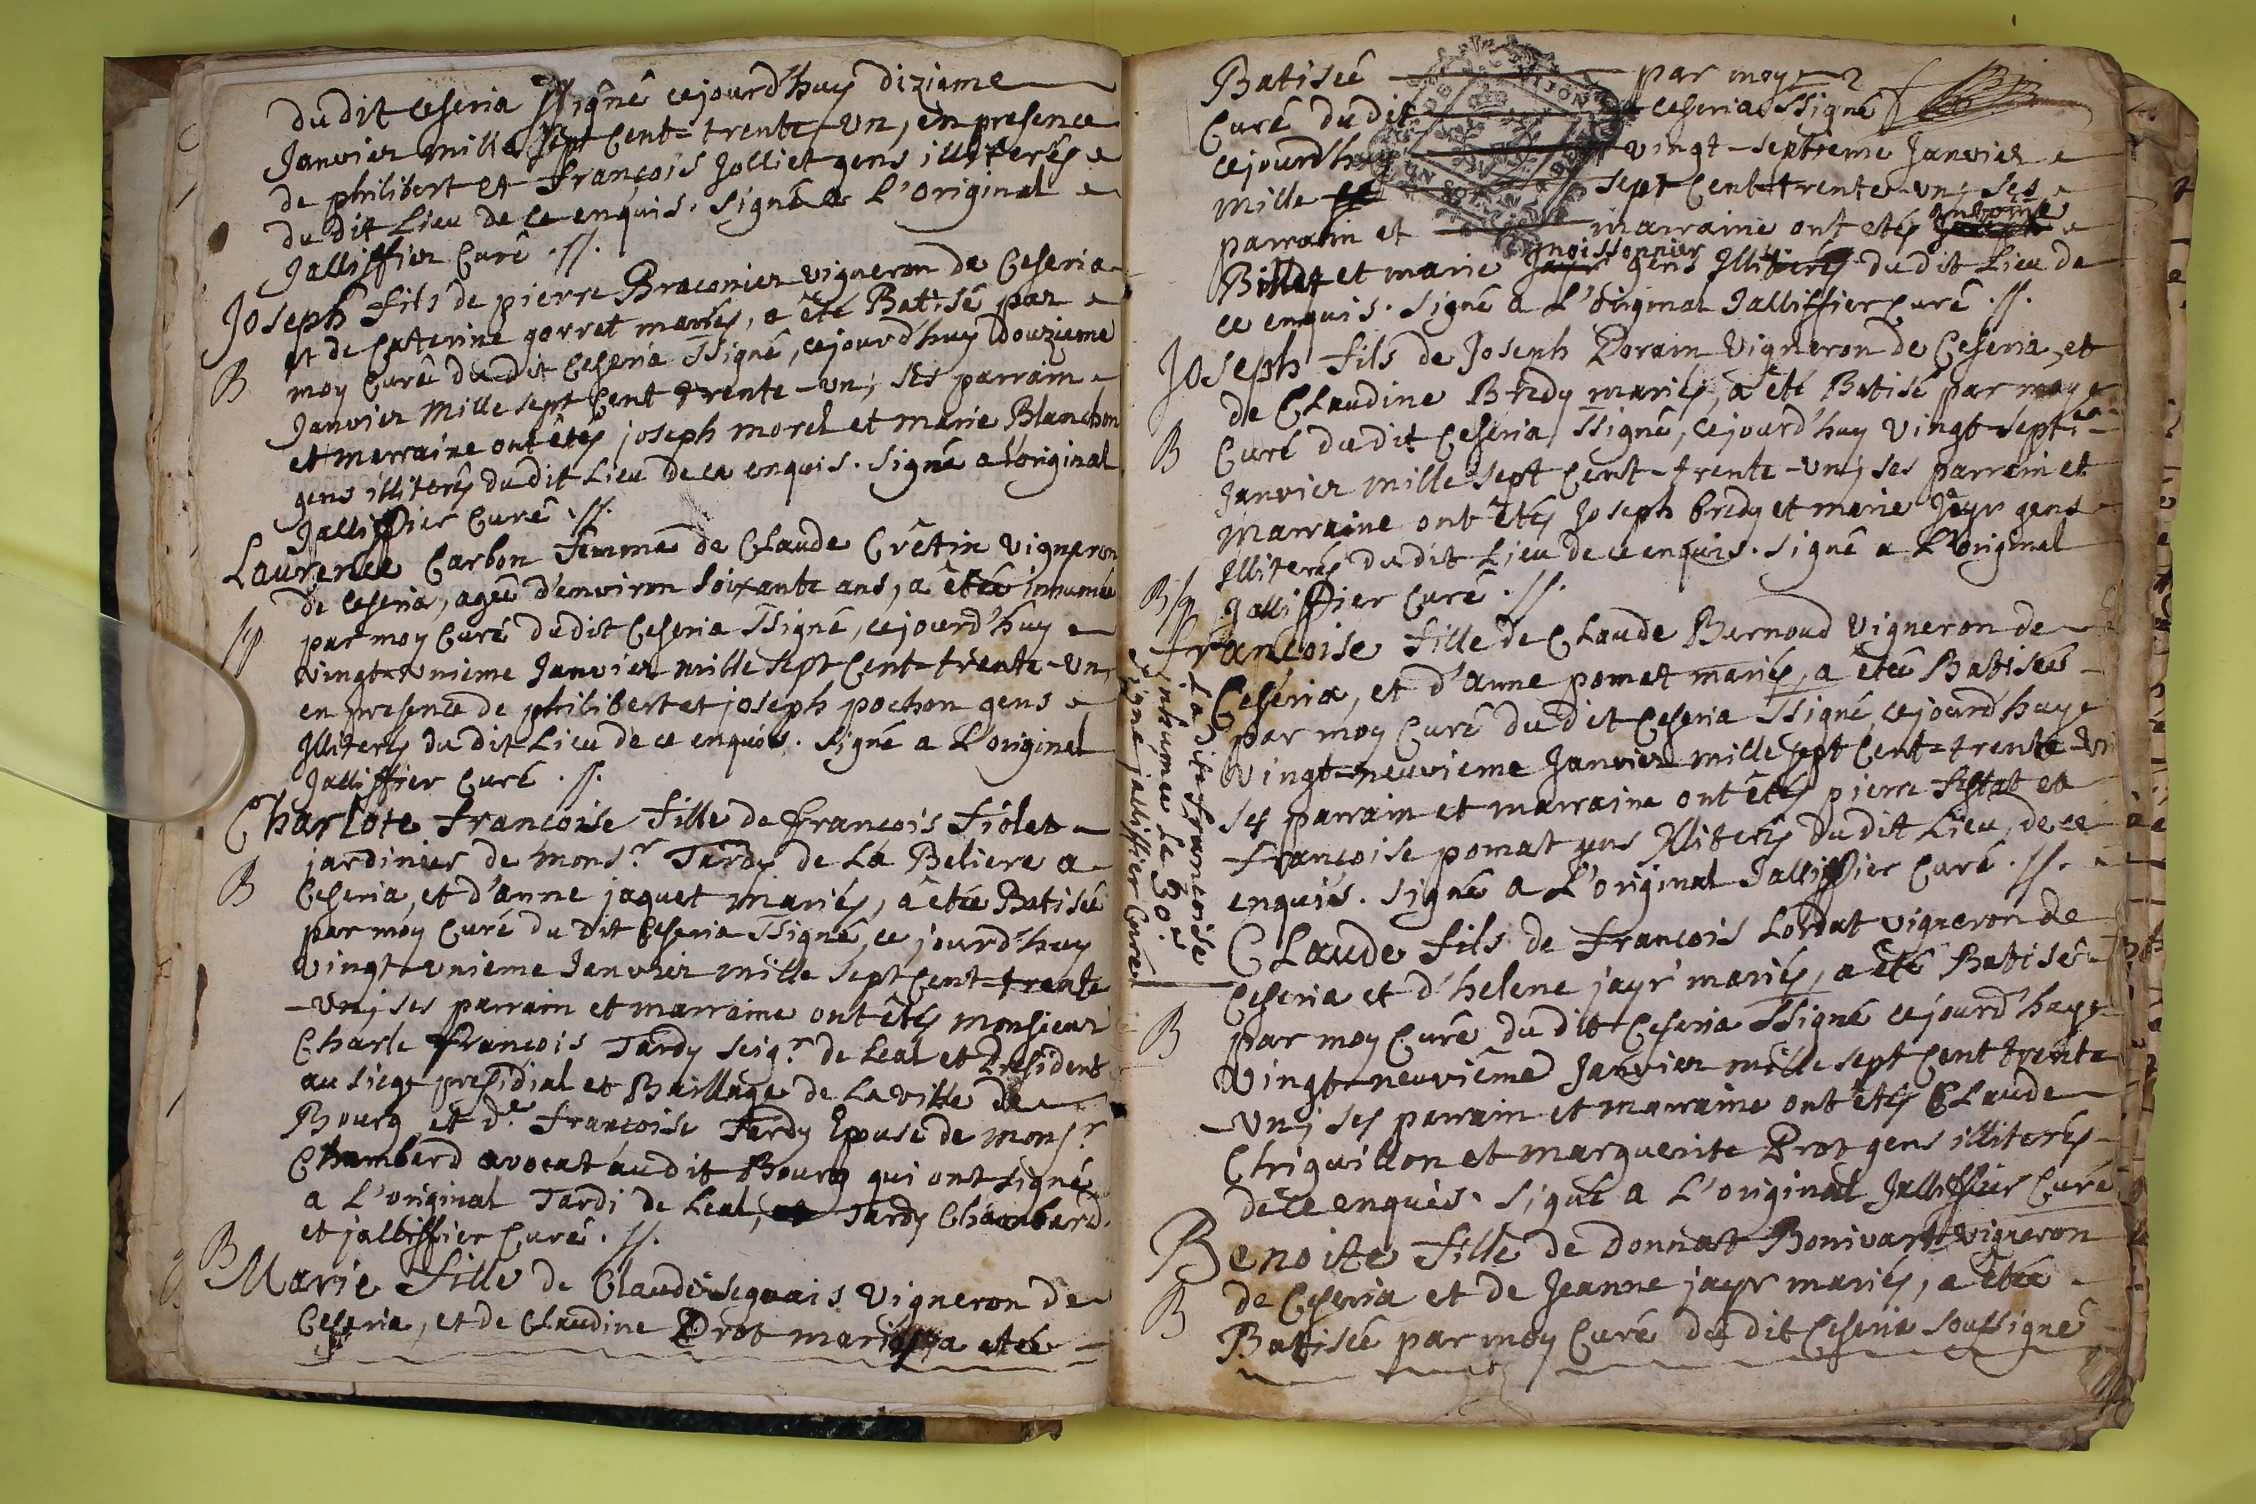 du dit Ceseria ssigné cejourd'huy dizieme
Janvier mille sept Cent-trente-vn, en presence
de philibert et françois Jolliet gens illiterés
du dit Lieu de ce enquis. signé a L'original
Jalliffier Curé .//.
Joseph fils de pierre Braconier vigneron de Ceseria
et de Caterine gorret mariés, a êté Batisé par
B
moy Curé du dit Ceseria ssigné, cejourd'huy douzieme
Janvier mille sept Cent trente-vn; ses parrain
et marraine ont êtés joseph morel et marie Blanchon
gens illiterés du dit Lieu de ce enquis. signé a L'original
Jalliffier Curé .//.
Laurence Carbon femme de CLaude Crêtin vigneron
de Ceseria, agée d'environ soixante ans, a êtée inhumée
sep
par moy Curé du dit Ceseria ssigné, cejourd'huy
vingt-vnieme Janvier mille sept Cent-trente-vn,
en presence de philibert et joseph pochon gens
Illiterés du dit Lieu de ce enquis. signé a L'original
Jalliffier Curé .//.
Charlote françoise fille de françois fiolet
jardinier de mons.r Tardy de La Beliere a
B
Ceseria, et d'anne jaquet mariés, a êtée Batisée
par moy Curé du dit Ceseria ssigné, ce jourd'huy
vingt-vnieme Janvier mille sept Cent-trente
-vn; ses parrain et marraine ont êtés monsieur
Charle françois Tardy seig.r de Leal et President
au siege presidial et Baillage de La ville de
Bourg, et d.e françoise Tardy Epouse de mons.r
Chambard avocat au dit Bourg qui ont signé
a L'original Tardi de Leal, Tardy Chambard
et jalliffier Curé .//.
B
Marie fille de Claude sequais vigneron de
Ceseria, et de CLaudine Drot mariés, a etée
Batisée par moy
Curé du dit Ceseria ssigné
cejourd'huy vingt-septieme Janvier
mille sept Cent-trente-vn; ses
parrain et marraine ont etés Antoine
moissonnier
Billet et marie gens Illiterés du dit Lieu de
ce enquis. signé a L'original Jalliffier Curé .//.
Joseph fils de Joseph Dorain vigneron de Ceseria, et
de CLaudine Bredy mariés, a êté Batisé par moy
B
Curé du dit Ceseria, ssigné, cejourd'huy vingt-septi
Janvier mille sept Cent-trente-vn; ses parrain et
marraine ont êtés Joseph bredy et marie Jayr gens
Illiterés du dit Lieu de ce enquis. signé a L'original
Jalliffier Curé .//.
B/sep
françoise fille de CLaude Bernoud vigneron de
Ceseria, et d'anne pomat mariés, a êtée Batisée
par moy Curé du dit Ceseria ssigné cejourd'huy
vingt-neuvieme Janvier mille sept Cent-trente-vn
ses parrain et marraine ont êtés pierre et
françoise pomat gens Illiterés du dit Lieu, de ce
enquis. signé a L'original Jalliffier Curé .//.
La dite françoise
inhumée Le 30.
signé jalliffier Curé
CLaude fils de françois Lordat vigneron de
Ceseria et d'helene jayr mariés, a êté Batisé
B
par moy Curé du dit Ceseria ssigné cejourd'huy
vingt-neuvième Janvier mille sept Cent trente
-vn; ses parrain et marraine ont êtés CLaude
Chiquillon et marguerite Drot gens illiterés
de ce enquis. signé a L'original Jalliffier Curé
Benoite fille de donnat Bonivart vigneron
B
de Ceseria et de Jeanne jayr mariés, a êtée
Batisée par moy Curé du dit Ceseria soussigné